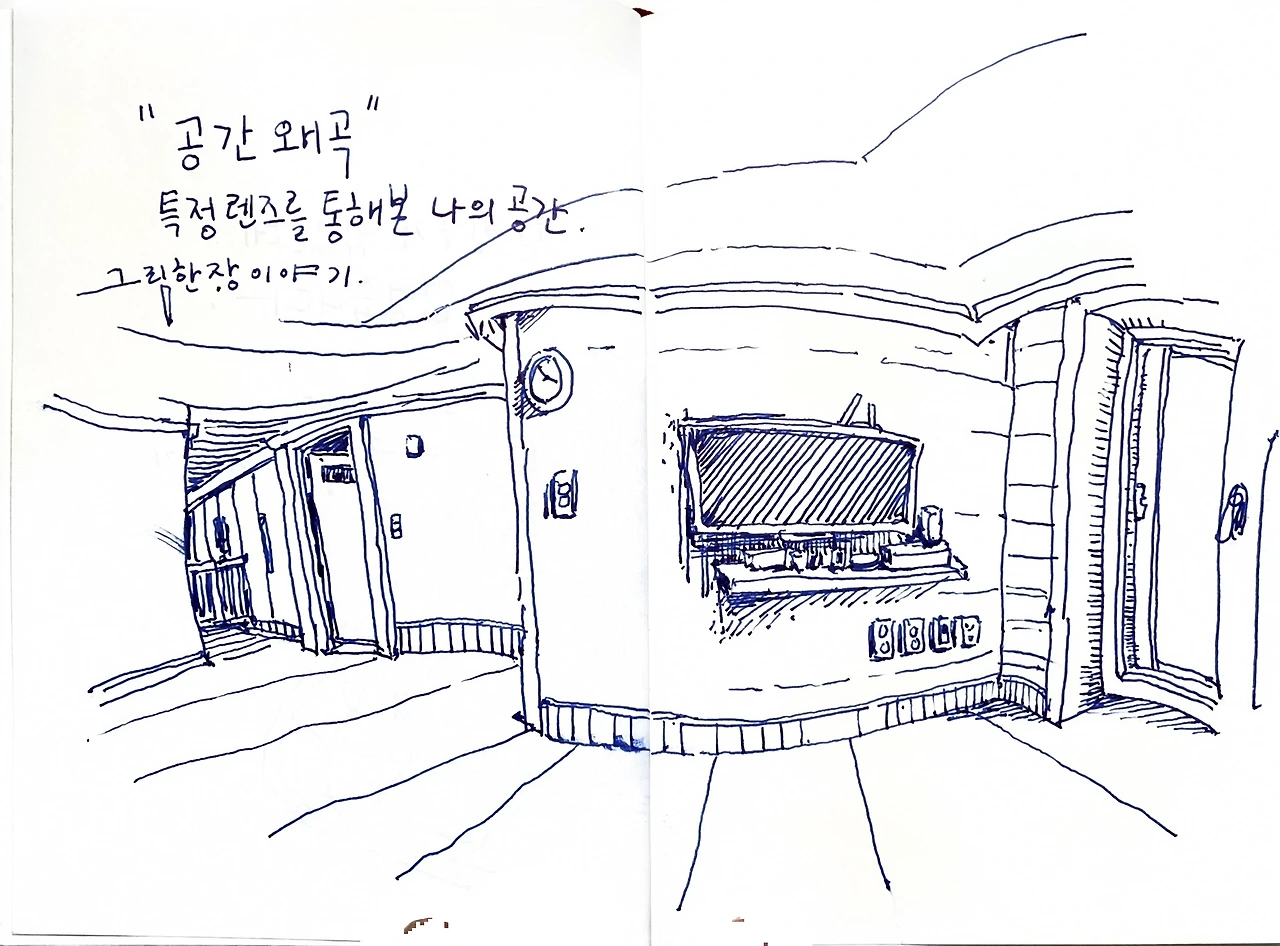 "공간 왜곡"
특정 렌즈를 통해본 나의 공간.
그림한장 이야기.